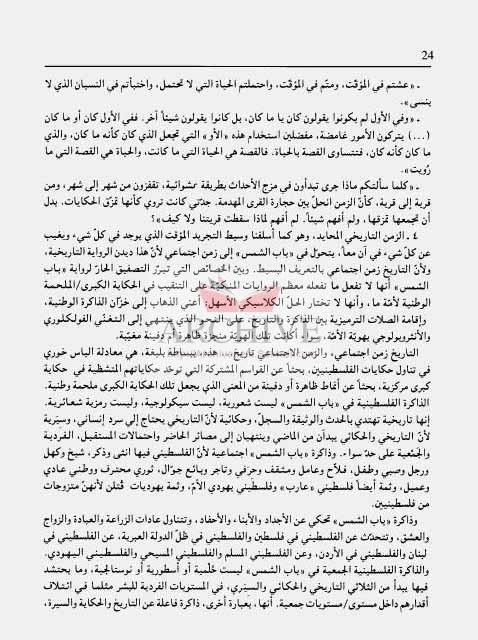 24
ـ «عشتم في المؤقت، ومتّم في المؤقت، واحتملتم الحياة التي لا تحتمل، واختبأتم في النسيان الذي لا
ينسى».
ـ «وفي الأول لم يكونوا يقولون كان يا ما كان، بل كانوا يقولون شيئاً آخر. ففي الأول كان أو ما كان
(...) يتركون الأمور غامضة، مفضلين استخدام هذه «الأو» التي تجعل الذي كان كأنه ما كان، والذي
ما كان كأنه كان، فتتساوى القصة بالحياة. فالقصة هي الحياة التي ما كانت، والحياة هي القصة التي ما
رُويت».
ـ «كلما سألتكم ماذا جرى تبدأون في مزج الأحداث بطريقة عشوائية، تقفزون من شهر إلى شهر، ومن
قرية إلى قرية، كأنّ الزمن انحلّ بين حجارة القرى المهدمة. جدّتي كانت تروي كأنها تمزّق الحكايات. بدل
أن تجمعها تمزقها، ولم أفهم شيئاً. لم أفهم لماذا سقطت قريتنا ولا كيف»؟
٤ ـ الزمن التاريخي المحايد، وهو كما أسلفنا وسيط التجريد المؤقت الذي يوجد في كلّ شيء ويغيب
عن كلّ شيء في آن معاً، يتحوّل في «باب الشمس» إلى زمن اجتماعي لأنّ هذا ديدن الرواية التاريخية،
ولأنّ التاريخ زمن اجتماعي بالتعريف البسيط. وبين الخصائص التي تبرّر التصفيق الحارّ لرواية «باب
الشمس» أنها لا تفعل ما تفعله معظم الروايات المنكبّة على التنقيب في الحكاية الكبرى/الملحمة
الوطنية لأمّة ما، وأنها لا تختار الحلّ الكلاسيكي الأسهل، أعني الذهاب إلى خزّان الذاكرة الوطنية،
وإقامة الصلات الترميزية بين الذاكرة والتاريخ على النحو الذي ينتهي إلى التغنّي الفولكلوري
والأنثروبولوجي بهويّة الأمّة، سواء أكانت تلك الهوية منجزة ظاهرة أم دفينة مغيّبة.
ARCHIVE
التاريخ زمن اجتماعي، والزمن الاجتماعي تاريخ — هذه، ببساطة بليغة، هي معادلة الياس خوري
في تناول حكايات الفلسطينيين، بحثاً عن القواسم المشتركة التي توحّد حكاياتهم المتشظية في حكاية
كبرى مركزية، بحثاً عن أنماط ظاهرة أو دفينة من المعنى الذي يجعل تلك الحكاية الكبرى ملحمة وطنية.
الذاكرة الفلسطينية في «باب الشمس» ليست شعورية، ليست سيكولوجية، وليست رمزية شعائرية.
إنها تاريخية تهتدي بالحدث والوثيقة والسجلّ، وحكائية لأنّ التاريخي يحتاج إلى سرد إنساني، وسِيَرية
لأنّ التاريخي والحكائي يبدآن من الماضي وينتهيان إلى مصائر الحاضر واحتمالات المستقبل، الفردية
والجَمْعية على حدّ سواء. وذاكرة «باب الشمس» اجتماعية لأنّ الفلسطيني فيها أنثى وذكر، شيخ وكهل
ورجل وصبي وطفل، فلاّح وعامل ومثقف وحِرَفي وتاجر وبائع جوّال، ثوري محترف ووطني عادي
وعميل، وثمة أيضاً فلسطيني «عارب» وفلسطيني يهودي الأمّ، وثمة يهوديات قُتلن لأنهنّ متزوجات
من فلسطينيين.
وذاكرة «باب الشمس» تحكي عن الأجداد والأبناء والأحفاد، وتتناول عادات الزراعة والعبادة والزواج
والعشق، وتتحدّث عن الفلسطيني في فلسطين والفلسطيني في ظلّ الدولة العبرية، عن الفلسطيني في
لبنان والفلسطيني في الأردن، وعن الفلسطيني المسلم والفلسطيني المسيحي والفلسطيني اليهودي.
والذاكرة الفلسطينية الجمعية في «باب الشمس» ليست حُلْمية أو أسطورية أو نوستالجية، وما يحتشد
فيها يبدأ من الثلاثي التاريخي والحكائي والسيَري، في المستويات الفردية للبشر مثلما في ائتلاف
أقدارهم داخل مستوى/مستويات جمعية. أنها، بعبارة أخرى، ذاكرة فاعلة عن التاريخ والحكاية والسيرة،